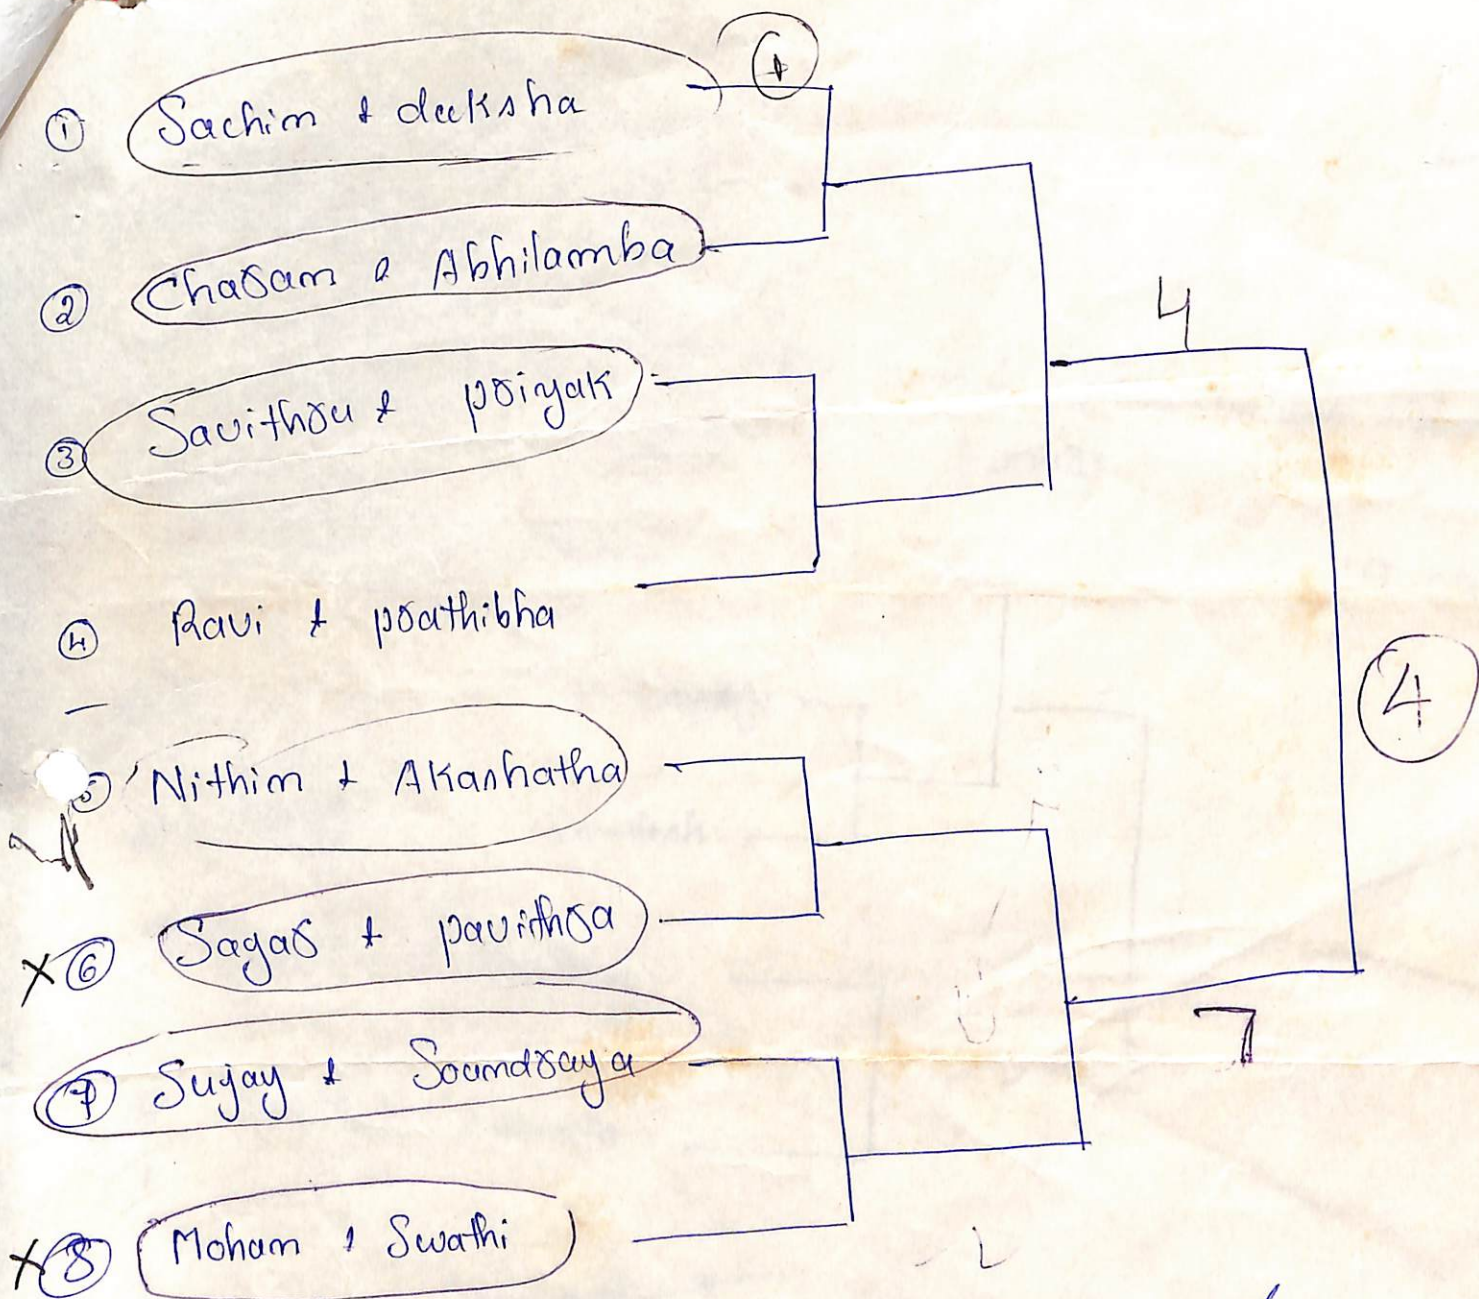 ① Sachin & deeksha
② Charan & Abhilamba
③ Savithru & priyak
④ Ravi & prathibha
⑤ Nithin & Akashatha
X ⑥ Sagar & pavithra
⑦ Sujay & Soundraya
X ⑧ Mohan & Swathi
4
④
7